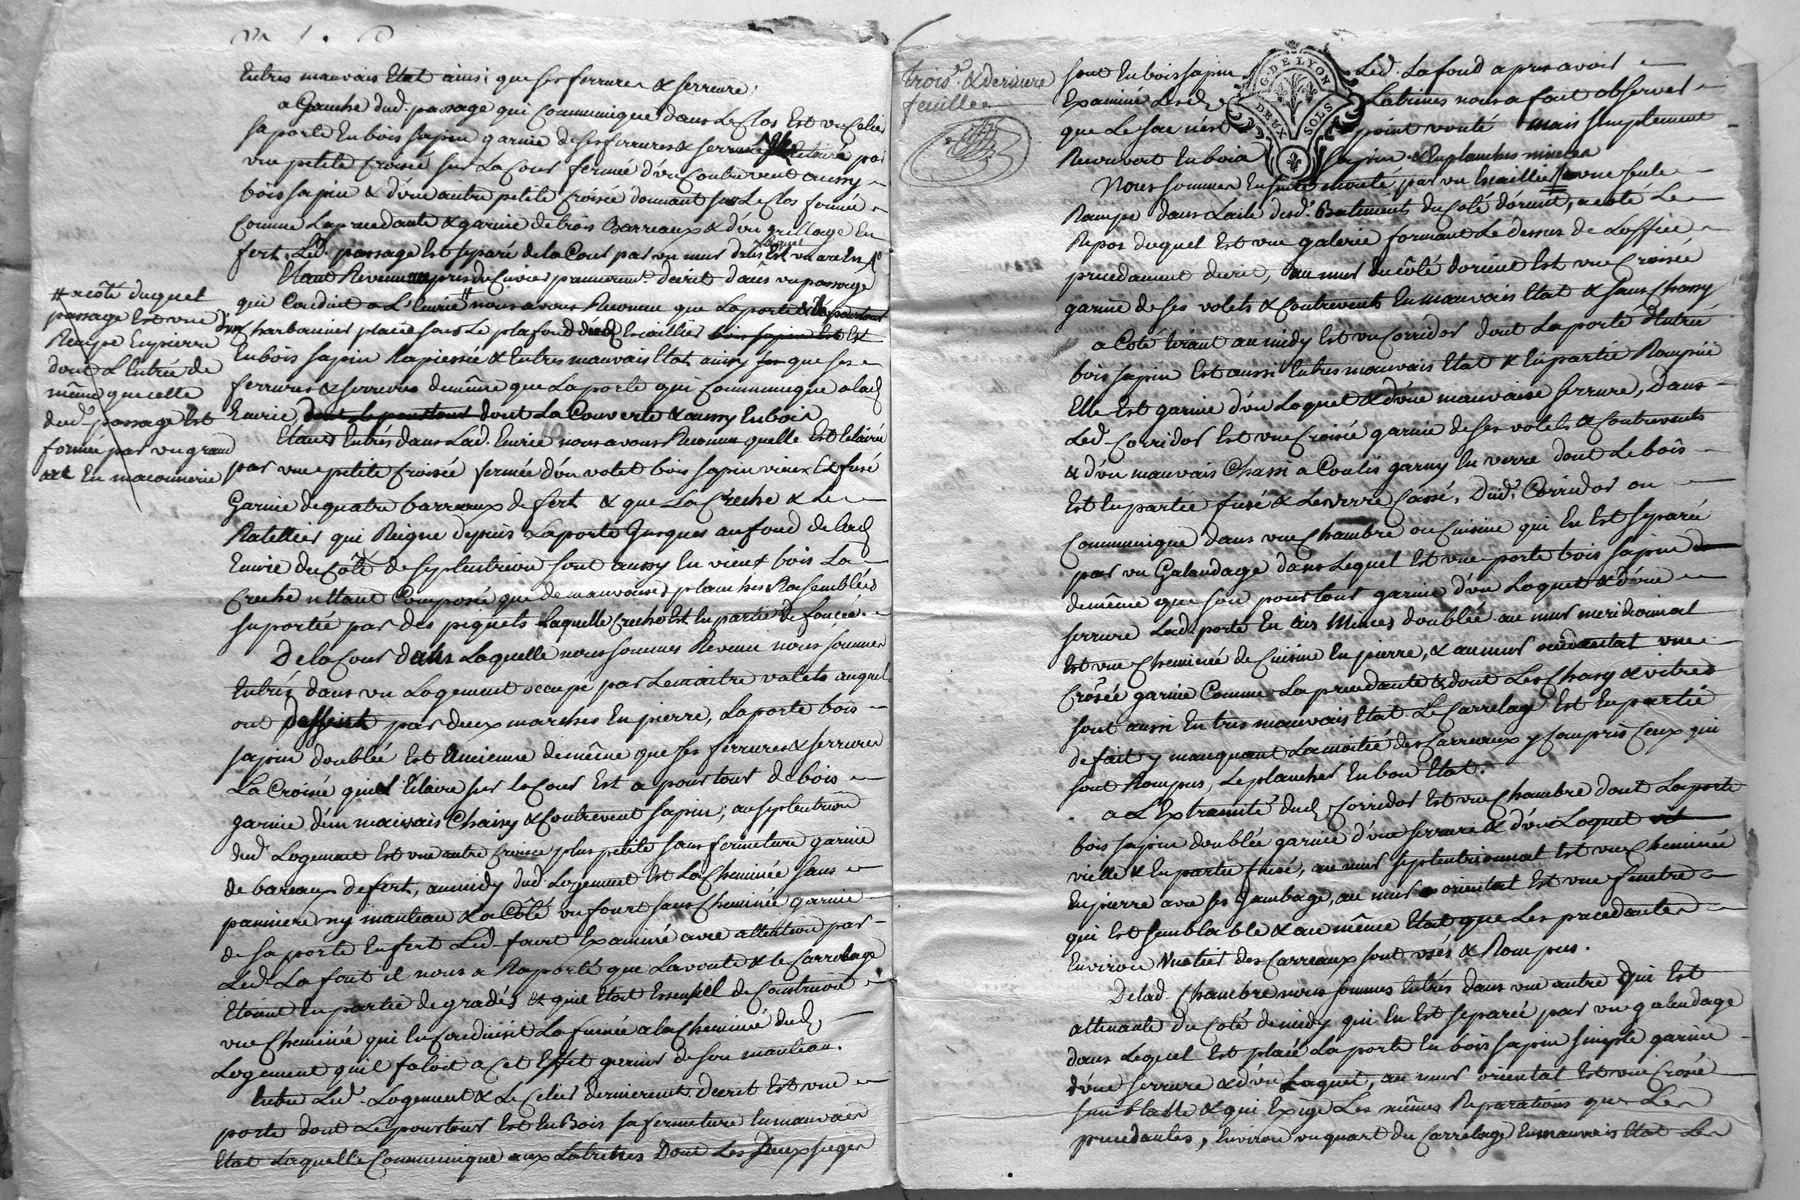 Entres mauvais Etat ainsi que ses ferrures & serrure;
a Gauche dud. passage qui Communique dans Le Clos Est un Celier
sa porte En bois sapin garnie de ses ferrures & serrure Eclairé par
une petite Croisée sur La Cour fermée d'un Contrevent aussy
bois sapin & d'une autre petite Croisée donnant sur Le Clos fermée
Comme La precedante & garnie de trois Barreaux & d'un grillage En
fert, Led. passage Est separé de la Cour par un mur dans Lequel Est un arc En
Etant Revenu dans un passage
qui Conduit a L'Ecurie nous avons Reconnu que La porte
d'un Charbonnier placé sous Le plafond dud. Escallier Est
En bois sapin Rapiessée & Entres mauvais Etat ainsy que ses
ferrures & serrures demême que La porte qui Communique a lad.
Ecurie dont La Couverte & aussy En bois
Etant Entrés dans Lad. Ecurie nous avons Reconnu quelle Est Eclairée
par une petite Croisée fermée d'un volet bois sapin vieux Et fusé
Garnie de quatre barreaux de fert & que La Créche & Le
Ratellier qui Reigne depuis La porte Jusques au fond de Lad.
Ecurie du Coté de septentrion sont aussy En vieux bois La
Creche nétant Composée que de mauvaises planches Rassemblées
suportée par des piquets Laquelle Creche Est En partie defoncée.
De la Cour dans Laquelle nous sommes Revenu nous sommes
Entrés dans un Logement occupé par Le maitre valets auquel
on par deux marches En pierre, La porte bois
sapin doublée Est Ancienne demême que ses ferrures & serrures
La Croisée qui L'Eclaire sur la Cour Est a pourtour de bois
garnie d'un mauvais Chassy & Contrevent sapin; au septentrion
dud. Logement Est une autre Croisée plus petite sans fermeture garnie
de bareaux de fert, au midy dud. Logement Est La Cheminée sans
ny manteau & a Côté un fourt sans Cheminée garnie
de sa porte En fert Led. fourt Examiné avec attention par
Led. La font il nous a Raporté que La voute & le Carrelage
Etoient En partie degradés & quil Etoit Essensiell de Construire
une Cheminée qui En Conduisit La fumée a la Cheminée dud.
Logement quil faloit a Cet Effet garnir de son manteau.
Entre Led. Logement & Le Celier dernierement decrit Est une
porte dont Le pourtour Est En Bois sa fermeture En mauvais
Etat Laquelle Communique aux Latrines Dont Les Deux sieges
# a coté duquel
passage Est une
Rampe En pierre
dont L'Entrée de
même que celle
dud. passage Est
formée par un grand
arc En maconnerie
trois.e & derniere
feuille
G. DE LYON
DEUX SOLS
sont En bois sapin Led. La fond apres avoir
Examiné Lesd. Latrines nous a fait observer
que Le sac n'est point vouté mais simplement
Recouvert En bois sapin & En planches minces
Nous sommes Ensuite monté par un Escallier a une seule
Rampe dans L'aile desd. Batiments du Coté d'orient, a coté Le
Repos duquel Est une galerie formant Le dessus de L'office
precedament decrit, au mur du côté d'orient Est une Croisée
garnie de ses volets & Contrevents En mauvais Etat & sans Chassy
a Coté tirant au midy Est un Corridor dont La porte d'Entrée
bois sapin Est aussi Entres mauvais Etat & En partie Rompue
Elle Est garnie d'un Loquet & d'une mauvaise serrure, Dans
Led. Corridor Est une Croisée garnie de ses volets & Contrevents
& d'un mauvais Chassi a Coulis garny En verre dont Le bois
Est En partie fusé & Les verre Cassé, Dud. Corridor on
Communique dans une Chambre ou Cuisine qui En Est separée
par un Galandage dans Lequel Est une porte bois sapin
demême que son pourtour garnie d'un Loquet & d'une
serrure Lad. porte En ais Minces doublée au mur meridional
Est une Cheminée de Cuisine En pierre, & au mur occidental une
Croisée garnie Comme La precedante & dont Les Chassy & vitres
sont aussi En tres mauvais Etat Le Carrelage Est En partie
defait y manquant La moitié des Carreaux y Compris Ceux qui
sont Rompus, Le plancher En bon Etat.
a L'Extremité dud. Corridor Est une Chambre dont La porte
bois sapin doublée garnie d'une serrure & d'un Loquet
vielle & En partie fusée, au mur septentrionnal Est une Cheminée
En pierre avec ses Jambage, au mur oriental Est une fenetre
qui Est semblable & au même Etat que Les precedantes
Environ des Carreaux sont usés & Rompus.
De lad. Chambre nous sommes Entrés dans une autre qui Est
attenante du Coté de midy qui En Est separée par un galendage
dans Lequel Est placé La porte En bois sapin simple garnie
d'une serrure & d'un Loquet, au mur oriental Est une Croisée
semblable & qui Exige Les mêmes Reparations que Les
precedantes, Environ un quart du Carrelage En mauvais Etat Les